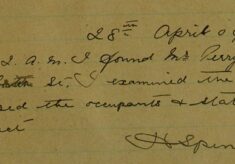 28th April 09
2. A.M. I found Mr Perry
St, I examined the
sed the occupants & stat
eet
H Spen